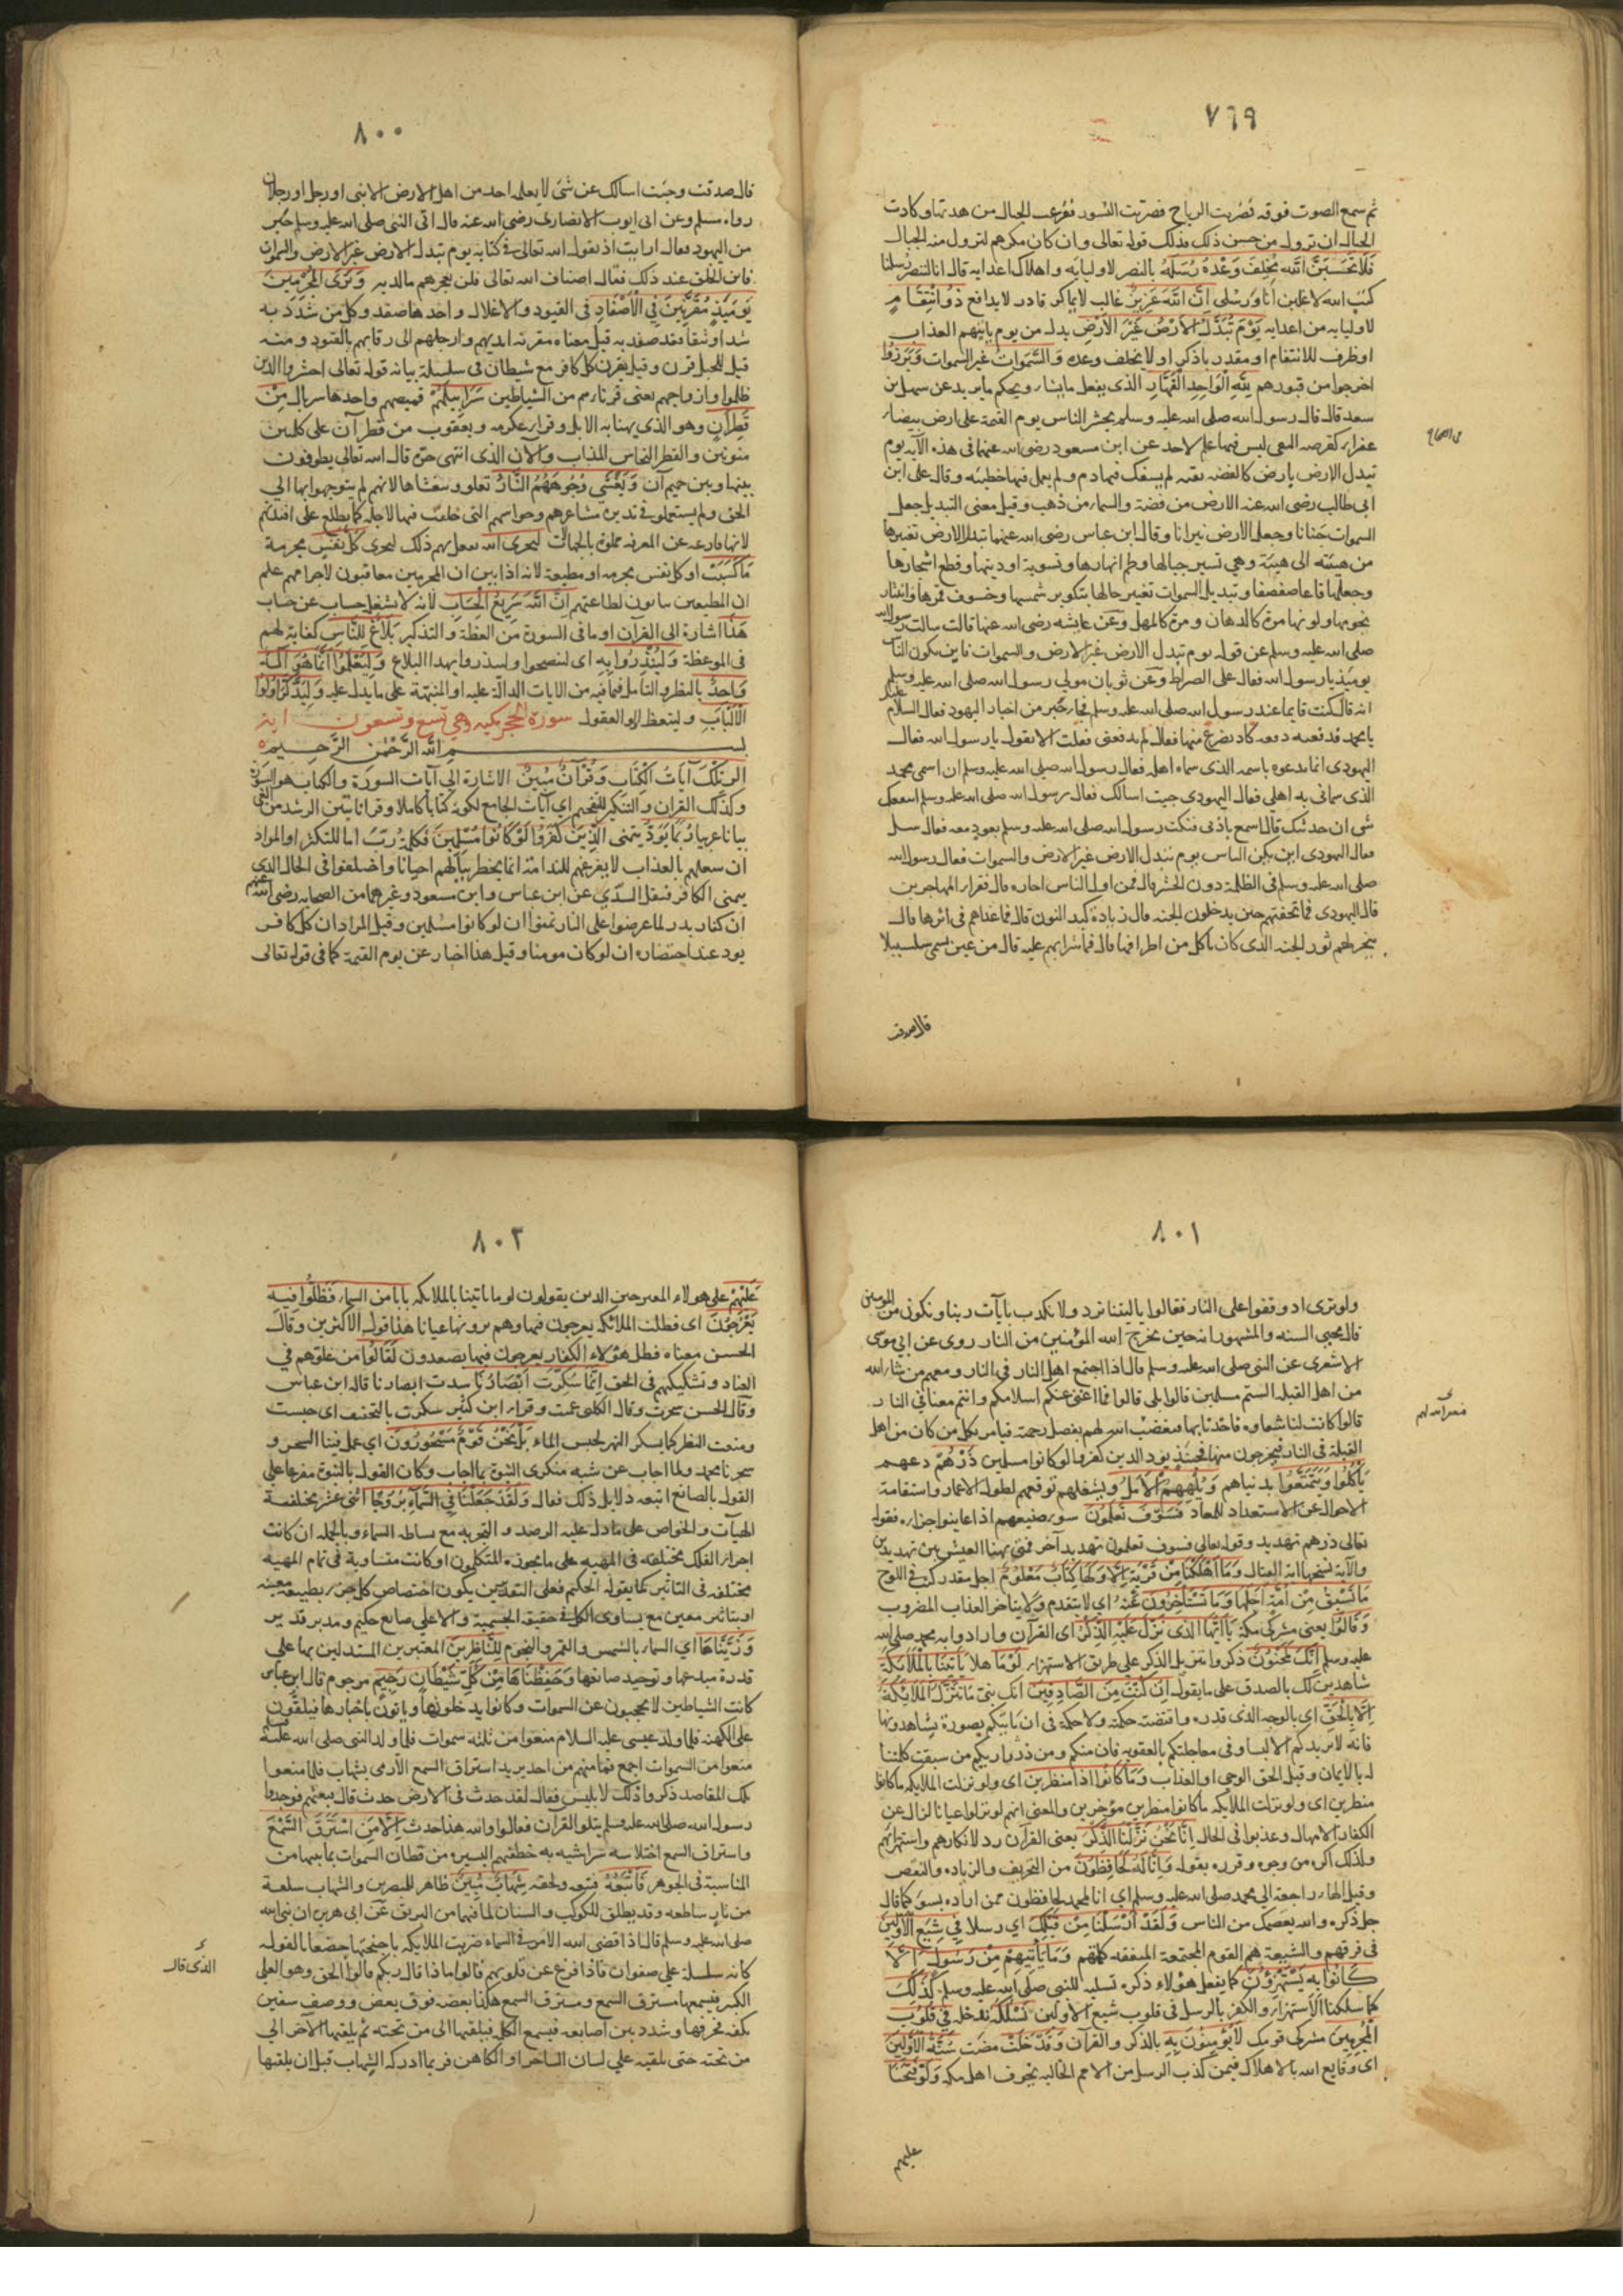 ٧٦٩
ثم سمع الصوت فوقه فضربت الرياح فضربت النسور ففزعت الجبال من هدتها وكادت
الجبال ان تزول من حسن ذلك فذلك قوله تعالى وان كان مكرهم لتزول منه الجبال
فَلَا تَحْسَبَنَّ اللَّهَ مُخْلِفَ وَعْدِهِ رُسُلَهُ بالنصر لاوليائه واهلاك اعدائه قال انا لننصر رسلنا
كتب الله لاغلبن انا ورسلى اِنَّ اللَّهَ عَزِيزٌ غالب لا يماكر قادر لا يدافع ذُو انْتِقَامٍ
لاوليائه من اعدائه يَوْمَ تُبَدَّلُ الْاَرْضُ غَيْرَ الْاَرْضِ بدل من يوم ياتيهم العذاب
او ظرف للانتقام او مقدر باذكر او لا يخلف وعده وَالسَّمَوَاتُ غير السموات وَبَرَزُوا
اخرجوا من قبورهم لِلَّهِ الْوَاحِدِ الْقَهَّارِ الذى يفعل ما يشاء ويحكم ما يريد عن سهل بن
سعد قال قال رسول الله صلى الله عليه وسلم يحشر الناس يوم القيمة على ارض بيضاء
عفراء كقرصة النقى ليس فيها علم لاحد عن ابن مسعود رضى الله عنهما فى هذه الآية يوم
تبدل الارض بارض كالفضة نقية لم يسفك فيها دم ولم يعمل فيها خطيئة وقال على ابن
ابى طالب رضى الله عنه الارض من فضة والسماء من ذهب وقيل معنى التبديل جعل
السموات جنانا وجعل الارض نيرانا وقال ابن عباس رضى الله عنهما تبدل الارض تغيرها
من هيئة الى هيئة وهي تسيير جبالها وطم انهارها وتسوية اوديتها وقطع اشجارها
وجعلها قاعا صفصفا وتبديل السموات تغيير حالها بتكوير شمسها وخسوف قمرها وانتثار
نجومها ولونها مرة كالدهان ومرة كالمهل وعن عايشة رضى الله عنها قالت سالت رسول الله
صلى الله عليه وسلم عن قوله يوم تبدل الارض غير الارض والسموات فاين يكون الناس
يومئذ يا رسول الله فقال على الصراط وعن ثوبان مولى رسول الله صلى الله عليه وسلم
انه قال كنت قايما عند رسول الله صلى الله عليه وسلم فجاء حبر من احبار اليهود فقال السلام عليك
يا محمد فدفعته دفعة كاد يصرع منها فقال لم تدفعنى فقلت الا تقول يا رسول الله فقال
اليهودى انما ندعوه باسمه الذى سماه اهله فقال رسول الله صلى الله عليه وسلم ان اسمى محمد
الذى سمانى به اهلى فقال اليهودى جيت اسالك فقال رسول الله صلى الله عليه وسلم اينفعك
شى ان حدثتك قال اسمع باذنى فنكت رسول الله صلى الله عليه وسلم بعود معه فقال سل
فقال اليهودى اين يكون الناس يوم تبدل الارض غير الارض والسموات فقال رسول الله
صلى الله عليه وسلم فى الظلمة دون الحشر قال فمن اول الناس اجازة قال فقراء المهاجرين
قال اليهودى فما تحفتهم حين يدخلون الجنة قال زيادة كبد النون قال فما غذاهم فى اثرها قال
ينحر لهم ثور الجنة الذى كان ياكل من اطرافها قال فما شرابهم عليه قال من عين تسمى سلسبيلا
قال صدقت
٨٠٠
قال صدقت وجئت اسالك عن شئ لا يعلمه احد من اهل الارض الا نبى او رجل او رجلان
رواه مسلم وعن ابى ايوب الانصارى رضى الله عنه قال اتى النبى صلى الله عليه وسلم حبر
من اليهود فقال ارايت اذ يقول الله تعالى فى كتابه يوم تبدل الارض غير الارض والسموات
فاين الخلق عند ذلك فقال اضياف الله تعالى فلن يعجزهم ما لديه وَتَرَى الْمُجْرِمِينَ
يَوْمَئِذٍ مُقَرَّنِينَ فِي الْاَصْفَادِ فى القيود والاغلال واحدها صفد وكل من شددته
شدا وثيقا فقد صفدته قيل معناه مقرنة ايديهم وارجلهم الى رقابهم بالقيود ومنه
قيل للحبل قرن وقيل يقرن كل كافر مع شيطان فى سلسلة بيانه قوله تعالى احشروا الذين
ظلموا وازواجهم يعنى قرناءهم من الشياطين سَرَابِيلُهُمْ قميصهم واحدها سربال مِنْ
قَطِرَانٍ وهو الذى يهنا به الابل وقراء عكرمة ويعقوب من قطرآن على كلمتين
منونتين والقطر النحاس المذاب والآن الذى انتهى حره قال الله تعالى يطوفون
بينها وبين حميم آن وَتَغْشَى وُجُوهَهُمُ النَّارُ تعلو وتغشاها لانهم لم يتوجهوا بها الى
الحق ولم يستعملوا فى تدبره مشاعرهم وحواسهم التى خلقت فيها لاجله كما يطلع على افئدتهم
لانها فارغة عن المعرفة مملوة بالجهالات لِيَجْزِىَ اللَّهُ يفعل بهم ذلك ليجزى كُلَّ نَفْسٍ مجرمة
مَا كَسَبَتْ او كل نفس مجرمة او مطيعة لانه اذا بين ان المجرمين معاقبون لاجرامهم علم
ان المطيعين يثابون لطاعتهم اِنَّ اللَّهَ سَرِيعُ الْحِسَابِ لانه لا يشغله حساب عن حساب
هَذَا اشارة الى القرآن او ما فى السورة من العظة والتذكير بَلَاغٌ لِلنَّاسِ كفاية لهم
فى الموعظة وَلِيُنْذَرُوا بِهِ اى لينصحوا ولينذروا بهذا البلاغ وَلِيَعْلَمُوا اَنَّمَا هُوَ اِلَهٌ
وَاحِدٌ بالنظر والتامل فيما فيه من الايات الدالة عليه او المنبهة على ما يدل عليه وَلِيَذَّكَّرَ اُولُوا
الْاَلْبَابِ وليتعظ اولوا العقول سورة الحجر مكية وهي تسع وتسعون آية
بسم الله الرحمن الرحيم
الر تِلْكَ آيَاتُ الْكِتَابِ وَقُرْآنٍ مُبِينٍ الاشارة الى آيات السورة والكتاب هو السورة
وكذلك القرآن والتنكير للتفخيم اي آيات الجامع لكونه كتابا كاملا وقرانا يبين الرشد من الغى
بيانا عربيا رُبَمَا يَوَدُّ يتمنى الَّذِينَ كَفَرُوا لَوْ كَانُوا مُسْلِمِينَ فكلمة رب اما للتكثير او المراد
ان شغلهم بالعذاب لا يفرغهم للندامة انما يخطر ببالهم احيانا واختلفوا فى الحال الذى
يتمنى الكافر فنقل السدّي عن ابن عباس وابن مسعود وغيرهما من الصحابة رضى الله عنهم
ان كفار بدر لما عرضوا على النار تمنوا ان لو كانوا مسلمين وقيل المراد ان كل كافر
يود عند احتضاره ان لو كان مومنا وقيل هذا اخبار عن يوم القيمة كما فى قوله تعالى
٨٠١
ولو ترى اذ وقفوا على النار فقالوا يا ليتنا نرد ولا نكذب بآيات ربنا ونكون من المومنين
قال محيى السنه والمشهور انه حين يخرج الله المؤمنين من النار روى عن ابى موسى
الاشعرى عن النبى صلى الله عليه وسلم قال اذا اجتمع اهل النار فى النار ومعهم من شاء الله
من اهل القبلة الستم مسلمين قالوا بلى قالوا فما اغنى عنكم اسلامكم وانتم معنا فى النار
قالوا كانت لنا شعاوه فاخذنا بها فيغضب الله لهم بفضل رحمته فيامر بكل من كان من اهل
القبلة فى النار فيخرجون منها فحينئذ يود الذين كفروا لو كانوا مسلمين ذَرْهُمْ دعهم
يَأْكُلُوا وَيَتَمَتَّعُوا بدنياهم وَيُلْهِهِمُ الْاَمَلُ ويشغلهم توقعهم لطول الاعمار واستقامة
الاحوال عن الاستعداد للمعاد فَسَوْفَ تَعْلَمُونَ سوء صنيعهم اذا عاينوا جزاءه فقوله
تعالى ذرهم تهديد وقوله تعالى فسوف تعلمون تهديد آخر فمتى يهنا العيش بين تهديدين
والآية نسختها اية القتال وَمَا اَهْلَكْنَا مِنْ قَرْيَةٍ اِلَّا وَلَهَا كِتَابٌ مَعْلُومٌ اجل مقدر كتب فى اللوح
مَا تَسْبِقُ مِنْ اُمَّةٍ اَجَلَهَا وَمَا يَسْتَاْخِرُونَ عنه اي لا يتقدم ولا يتاخر العذاب المضروب
وَقَالُوا يعنى مشركى مكة يَا اَيُّهَا الَّذِى نُزِّلَ عَلَيْهِ الذِّكْرُ اى القرآن وارادوا به محمد صلى الله
عليه وسلم اِنَّكَ لَمَجْنُونٌ ذكروا تنزيل الذكر على طريق الاستهزاء لَوْ مَا هلا تَاْتِينَا بِالْمَلَائِكَةِ
شاهدين لك بالصدق على ما تقول اِنْ كُنْتَ مِنَ الصَّادِقِينَ انك نبى مَا نُنَزِّلُ الْمَلَائِكَةَ
اِلَّا بِالْحَقِّ اي بالوجه الذى قدره واقتضته حكمته ولا حكمة فى ان ياتيكم بصورة تشاهدونها
فانه لا يزيدكم الا لبسا ولا فى معاجلتكم بالعقوبة فان منكم ومن ذراريكم من سبقت كلمتنا
له بالايمان وقيل الحق الوحى او العذاب وَمَا كَانُوا اِذًا مُنْظَرِينَ اى ولو نزلت الملايكة ما كانوا
منظرين اى ولو نزلت الملايكة ما كانوا منظرين مؤخرين والمعنى انهم لو نزلوا عيانا لزال عن
الكفار الامهال وعذبوا فى الحال اِنَّا نَحْنُ نَزَّلْنَا الذِّكْرَ يعنى القرآن رد لانكارهم واستهزائهم
ولذلك اكده من وجوه وقرره بقوله وَاِنَّا لَهُ لَحَافِظُونَ من التحريف والزيادة والنقص
وقيل الهاء راجعة الى محمد صلى الله عليه وسلم اي انا لمحمد لحافظون ممن اراده بسوء كما قال
جل ذكره والله يعصمك من الناس وَلَقَدْ اَرْسَلْنَا مِنْ قَبْلِكَ اي رسلا فِي شِيَعِ الْاَوَّلِينَ
فى فرقهم والشيعة هم القوم المجتمعة المتفقة كلمتهم وَمَا يَاْتِيهِمْ مِنْ رَسُولٍ اِلَّا
كَانُوا بِهِ يَسْتَهْزِؤُنَ كما يفعل هؤلاء ذكره تسلية للنبى صلى الله عليه وسلم كَذَلِكَ
كما سلكنا الاستهزاء والكفر بالرسل فى قلوب شيع الاولين نَسْلُكُهُ ندخله فِي قُلُوبِ
الْمُجْرِمِينَ مشركى قومك لَا يُؤْمِنُونَ بِهِ بالذكر والقرآن وَقَدْ خَلَتْ مضت سُنَّةُ الْاَوَّلِينَ
اى وقايع الله بالاهلاك فيمن كذب الرسل من الامم الخالية يخوف اهل مكة وَلَوْ فَتَحْنَا
عليهم
٨٠٢
عَلَيْهِمْ على هولاء المقترحين الذين يقولون لو ما تاتينا بالملايكة بَابًا مِنَ السَّمَاءِ فَظَلُّوا فِيهِ
يَعْرُجُونَ اى فظلت الملائكة يعرجون فيها وهم يرونها عيانا هذا قول الاكثرين وقال
الحسن معناه فظل هؤلاء الكفار يعرجون فيها يصعدون لَقَالُوا من غلوهم في
العناد وتشكيكهم فى الحق اِنَّمَا سُكِّرَتْ اَبْصَارُنَا سدت ابصارنا قاله ابن عباس
وقال الحسن سحرت وقال الكلبى عميت وقراء ابن كثير سكرت بالتخفيف اى حبست
ومنعت النظر كما يسكر النهر لحبس الماء بَلْ نَحْنُ قَوْمٌ مَسْحُورُونَ اي عمل فينا السحر و
سحرنا محمد ولما اجاب عن شبه منكرى النبوة بما اجاب وكان القول بالنبوة مفرعا على
القول بالصانع اتبعه دلايل ذلك فقال وَلَقَدْ جَعَلْنَا فِي السَّمَاءِ بُرُوجًا اثنى عشر مختلفة
الهيآت والخواص على ما دل عليه الرصد والتجربة مع بساطة السماء وبالجملة ان كانت
اجزاء الفلك مختلفة فى المهية على ما يجوزه المتكلمون او كانت متساوية فى تمام المهية
مختلفة فى التاثير كما يقوله الحكيم فعلى التقديرين يكون اختصاص كل جزء بطبيعة معينة
او بتاثير معين مع تساوى الكل فى حقيقة الجسمية والا على صانع حكيم ومدبر قدير
وَزَيَّنَّاهَا اي السماء بالشمس والقمر والنجوم لِلنَّاظِرِينَ المعتبرين المستدلين بها على
قدرة مبدعها وتوحيد صانعها وَحَفِظْنَاهَا مِنْ كُلِّ شَيْطَانٍ رَجِيمٍ مرجوم قال ابن عباس
كانت الشياطين لا يحجبون عن السموات وكانوا يدخلونها وياتون باخبارها فيلقون
على الكهنة فلما ولد عيسى عليه السلام منعوا من ثلثة سموات فلما ولد النبى صلى الله عليه وسلم
منعوا من السموات اجمع فما منهم من احد يريد استراق السمع الا رمى بشهاب فلما منعوا
تلك المقاصد ذكروا ذلك لابليس فقال لقد حدث فى الارض حدث قال فبعثهم فوجدوا
رسول الله صلى الله عليه وسلم يتلو القرآن فقالوا والله هذا حدث اِلَّا مَنِ اسْتَرَقَ السَّمْعَ
واستراق السمع اختلاسه سرا شبه به خطفتهم اليسيرة من قطان السموات بما بينهما من
المناسبة فى الجوهر فَاَتْبَعَهُ فتبعه ولحقه شِهَابٌ مُبِينٌ ظاهر للمبصرين والشهاب شعلة
من نار ساطعة وقد يطلق للكوكب والسنان لما فيهما من البريق عن ابى هريرة ان نبى الله
صلى الله عليه وسلم قال اذا قضى الله الامر فى السماء ضربت الملايكة باجنحتها خضعا لقوله
كانه سلسلة على صفوان فاذا فزع عن قلوبهم قالوا ماذا قال ربكم قالوا الحق وهو العلى
الذى قال
الكبير فيسمعها مسترق السمع ومسترق السمع هكذا بعضه فوق بعض ووصف سفين
بكفه فحرفها وشدد بين اصابعه فيسمع الكلمة فيلقيها الى من تحته ثم يلقيها الآخر الى
من تحته حتى يلقيه على لسان الساحر او الكاهن فربما ادركه الشهاب قبل ان يلقيها